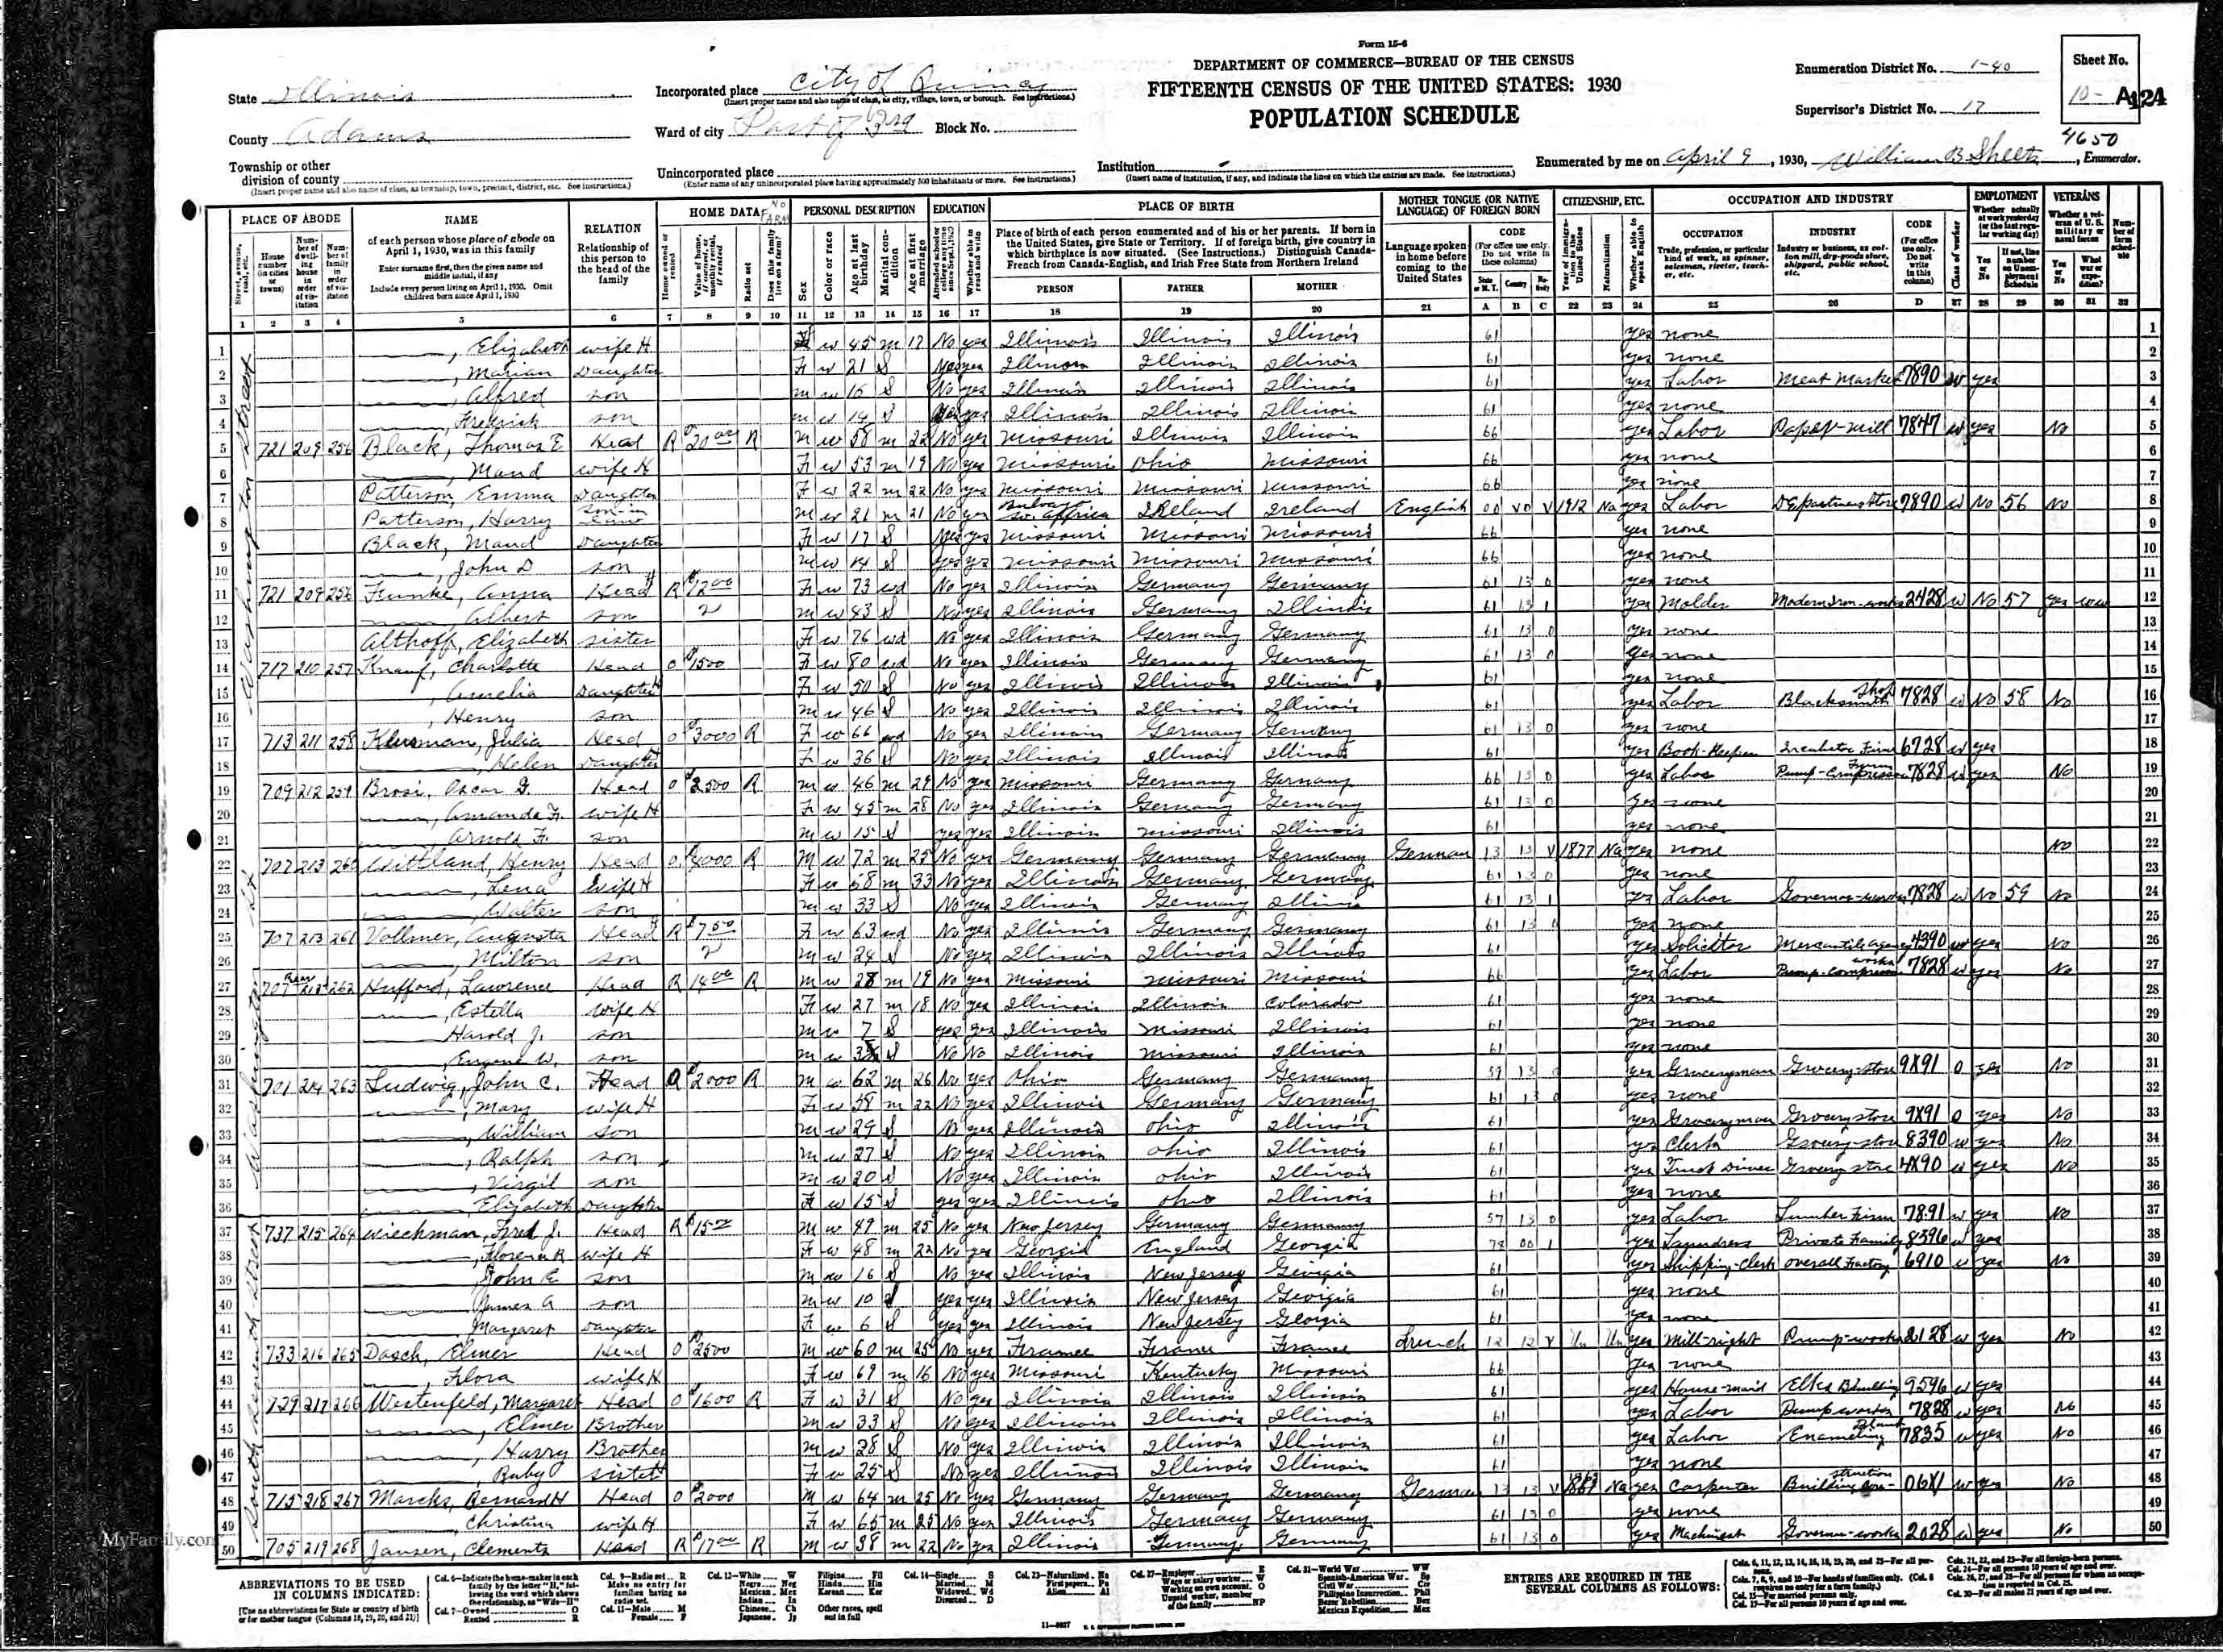 Form 15-6
DEPARTMENT OF COMMERCE—BUREAU OF THE CENSUS
FIFTEENTH CENSUS OF THE UNITED STATES: 1930
POPULATION SCHEDULE
State Illinois
County Adams
Township or other division of county
(Insert proper name and also name of class, as township, town, precinct, district, etc. See instructions.)
Incorporated place City of Quincy
(Insert proper name and also name of class, as city, village, town, or borough. See instructions.)
Ward of city Part of 3rd Block No.
Unincorporated place
(Enter name of any unincorporated place having approximately 500 inhabitants or more. See instructions.)
Institution
(Insert name of institution, if any, and indicate the lines on which the entries are made. See instructions.)
Enumeration District No. 1-40
Supervisor's District No. 17
Sheet No.
10- A 124
4650
Enumerated by me on April 9, 1930, William B Sheets, Enumerator.
PLACE OF ABODE NAME RELATION HOME DATA PERSONAL DESCRIPTION EDUCATION PLACE OF BIRTH MOTHER TONGUE (OR NATIVE LANGUAGE) OF FOREIGN BORN CITIZENSHIP, ETC. OCCUPATION AND INDUSTRY EMPLOYMENT VETERANS
of each person whose place of abode on April 1, 1930, was in this family
Enter surname first, then the given name and middle initial, if any
Include every person living on April 1, 1930. Omit children born since April 1, 1930
Relationship of this person to the head of the family
Place of birth of each person enumerated and of his or her parents. If born in the United States, give State or Territory. If of foreign birth, give country in which birthplace is now situated. (See Instructions.) Distinguish Canada-French from Canada-English, and Irish Free State from Northern Ireland
PERSON FATHER MOTHER
Language spoken in home before coming to the United States
CODE (For office use only. Do not write in these columns)
OCCUPATION INDUSTRY CODE
1 Elizabeth wife H F w 45 m 17 No yes Illinois Illinois Illinois 61 yes none
2 Marian Daughter F w 21 S yes Illinois Illinois Illinois 61 yes none
3 Alfred son m w 16 S No yes Illinois Illinois Illinois 61 yes Labor Meat Market 7890 w yes
4 Fredrick son m w 14 S yes Illinois Illinois Illinois 61 yes none
5 721 209 256 Black, Thomas E Head R 20 R m w 58 m 22 No yes Missouri Illinois Illinois 66 yes Labor Paper-mill 7847 w yes No
6 Maud wife H F w 53 m 19 No yes Missouri Ohio Missouri 66 yes none
7 Patterson, Emma Daughter F w 22 m 22 No yes Missouri Missouri Missouri 66 yes none
8 Patterson, Harry son-in-law m w 21 m 21 No yes So. Africa Ireland Ireland English 00 V0 V 1912 Na yes Labor Department Store 7890 w No 56 No
9 Black, Maud Daughter F w 17 S yes yes Missouri Missouri Missouri 66 yes none
10 John D son m w 14 S yes yes Missouri Missouri Missouri 66 yes none
11 721 209 256 Funke, Anna Head H R 12 00 F w 73 wd No yes Illinois Germany Germany 61 13 0 yes none
12 Albert son m w 43 S No yes Illinois Germany Illinois 61 13 1 yes Molder Modern Iron-works 2428 w No 57 yes ww
13 Althoff, Elizabeth sister F w 76 wd No yes Illinois Germany Germany 61 13 0 yes none
14 717 210 257 Knauf, Charlotte Head O 1500 F w 80 wd No yes Illinois Germany Germany 61 13 0 yes none
15 Amelia Daughter H F w 50 S No yes Illinois Illinois Illinois 61 yes none
16 Henry son m w 46 S No yes Illinois Illinois Illinois 61 yes Labor Blacksmith Shop 7828 w No 58 No
17 713 211 258 Klusman, Julia Head O 3000 R F w 66 wd No yes Illinois Germany Germany 61 13 0 yes none
18 Helen Daughter F w 36 S No yes Illinois Illinois Illinois 61 yes Book-Keeper Incubator Firm 6728 w yes
19 709 212 259 Brosi, Oscar G. Head O 2500 R m w 46 m 29 No yes Missouri Germany Germany 66 13 0 yes Labor Pump-Compressor Firm 7828 w yes No
20 Amanda F. wife H F w 45 m 28 No yes Illinois Germany Germany 61 13 0 yes none
21 Arnold F. son m w 15 S yes yes Illinois Missouri Illinois 61 yes none
22 707 213 260 Wittland, Henry Head O 4000 R m w 72 m 25 No yes Germany Germany Germany German 13 13 V 1877 Na yes none No
23 Lena wife H F w 68 m 33 No yes Illinois Germany Germany 61 13 0 yes none
24 Walter son m w 33 S No yes Illinois Germany Illinois 61 13 1 yes Labor Governor-works 7828 w No 59 No
25 707 213 261 Vollmer, Augusta Head H R 7 50 F w 63 wd No yes Illinois Germany Germany 61 13 0 yes none
26 Milton son m w 24 S No yes Illinois Illinois Illinois 61 yes Solicitor Mercantile agency 4390 w yes No
27 Rear 707 213 262 Hufford, Lawrence Head R 14 00 R m w 28 m 19 No yes Missouri Missouri Missouri 66 yes Labor Pump-Compressor works 7828 w yes No
28 Estella wife H F w 27 m 18 No yes Illinois Illinois Colorado 61 yes none
29 Harold J. son m w 7 S yes yes Illinois Missouri Illinois 61 yes none
30 Eugene W. son m w 3 S No No Illinois Missouri Illinois 61 yes none
31 701 214 263 Ludwig, John C. Head O 2000 R m w 62 m 26 No yes Ohio Germany Germany 59 13 0 yes Groceryman Grocery-store 9X91 O yes No
32 Mary wife H F w 58 m 22 No yes Illinois Germany Germany 61 13 0 yes none
33 William son m w 29 S No yes Illinois Ohio Illinois 61 yes Groceryman Grocery store 9X91 O yes No
34 Ralph son m w 27 S No yes Illinois Ohio Illinois 61 yes Clerk Grocery-store 8390 w yes No
35 Virgil son m w 20 S No yes Illinois Ohio Illinois 61 yes Truck Driver Grocery store 4X90 w yes No
36 Elizabeth Daughter F w 15 S yes yes Illinois Ohio Illinois 61 yes none
37 737 215 264 Wieckman, Fred J. Head R 15 m w 49 m 25 No yes New Jersey Germany Germany 57 13 0 yes Labor Lumber Firm 7891 w yes No
38 Florence R wife H F w 48 m 22 No yes Georgia England Georgia 78 00 1 yes Laundress Private Family 8596 w yes
39 John E son m w 16 S No yes Illinois New Jersey Georgia 61 yes Shipping-Clerk Overall Factory 6910 w yes No
40 James A son m w 10 S yes yes Illinois New Jersey Georgia 61 yes none
41 Margaret Daughter F w 6 S yes yes Illinois New Jersey Georgia 61 yes none
42 733 216 265 Dasch, Elmer Head O 2500 m w 60 m 25 No yes France France France French 12 12 V Un Un yes Mill-right Pump-works 2128 w yes No
43 Flora wife H F w 69 m 16 No yes Missouri Kentucky Missouri 66 yes none
44 729 217 266 Westenfeld, Margaret Head O 1600 R F w 31 S No yes Illinois Illinois Illinois 61 yes House-maid Elks Building 9596 w yes
45 Elmer Brother m w 33 S No yes Illinois Illinois Illinois 61 yes Labor Pump works 7828 w yes No
46 Harry Brother m w 28 S No yes Illinois Illinois Illinois 61 yes Labor Enameling Plant 7835 w yes No
47 Ruby sister H F w 25 S No yes Illinois Illinois Illinois 61 yes none
48 715 218 267 Marcks, Bernard H Head O 2000 m w 64 m 25 No yes Germany Germany Germany German 13 13 V Na yes Carpenter Building Construction 06X1 w yes No
49 Christina wife H F w 65 m 25 No yes Illinois Germany Germany 61 13 0 yes none
50 705 219 268 Jansen, Clements Head R 17 00 R m w 38 m 22 No yes Illinois Germany Germany 61 13 0 yes Machinist Governor-works 2028 w yes No
Washington Street
Washington St
South Seventh Street
MyFamily.com
ABBREVIATIONS TO BE USED IN COLUMNS INDICATED:
[Use no abbreviations for State or country of birth or for mother tongue (Columns 18, 19, 20, and 21)]
ENTRIES ARE REQUIRED IN THE SEVERAL COLUMNS AS FOLLOWS: